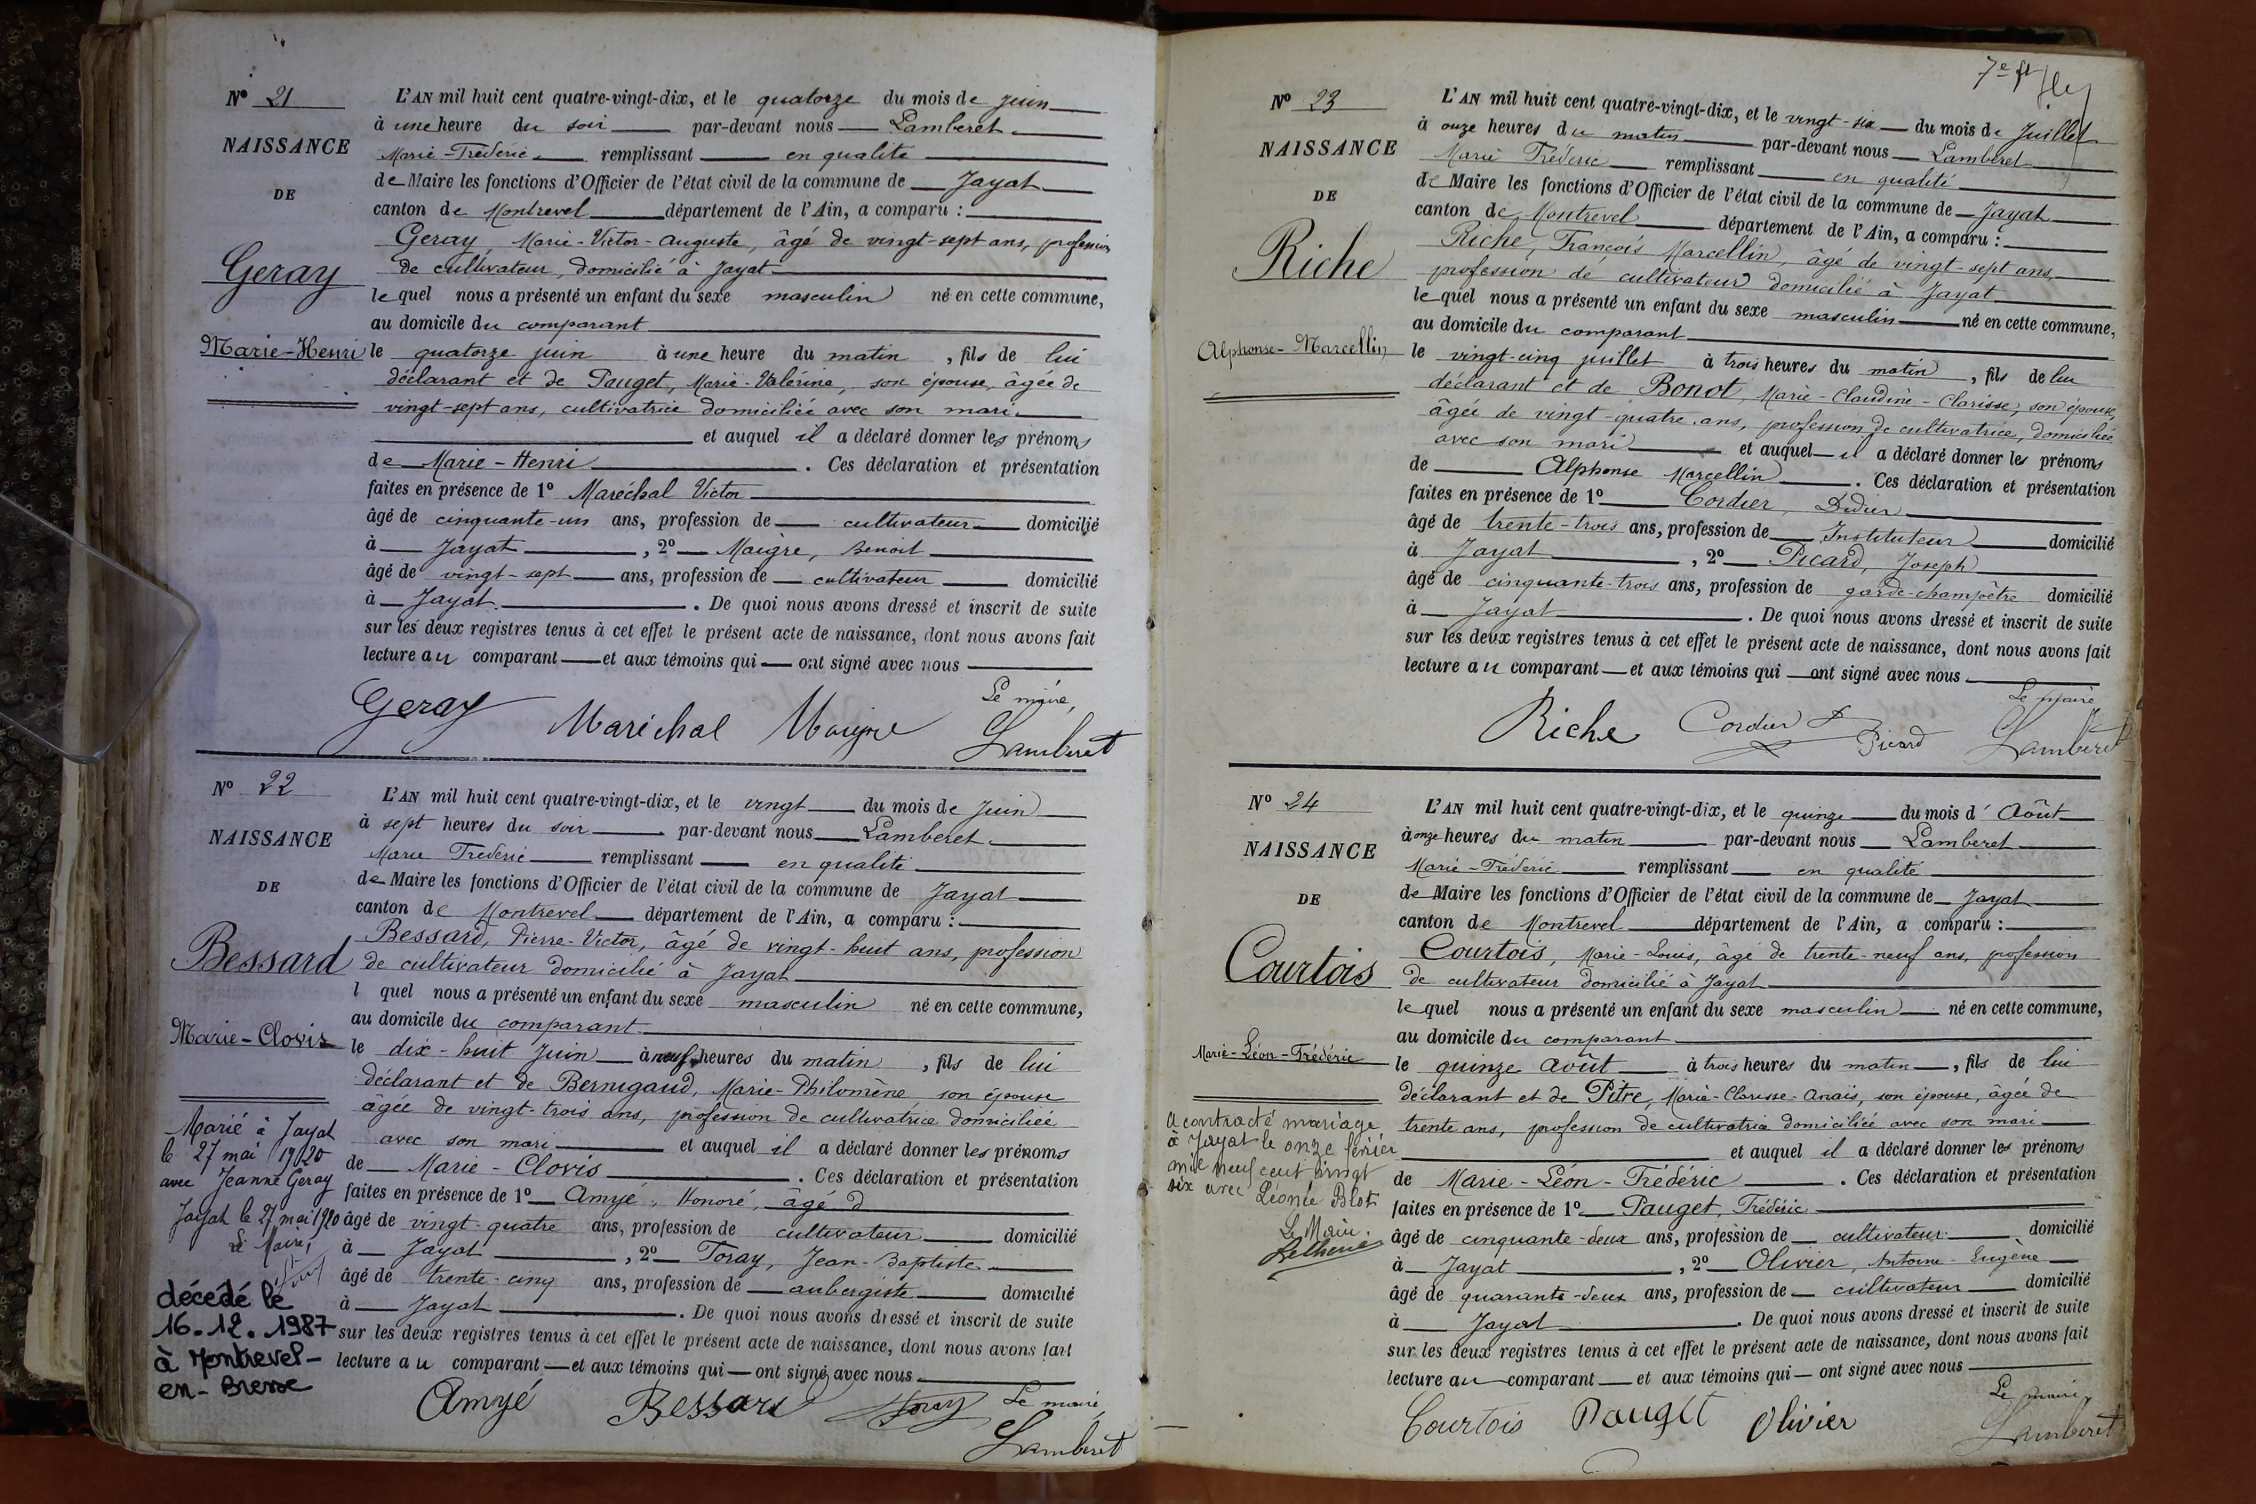 Nº 21
NAISSANCE
DE
Geray
Marie-Henri
L'AN mil huit cent quatre-vingt-dix, et le quatorze du mois de juin
à une heure du soir par-devant nous Lamberet
Marie-Frédéric remplissant en qualité
de Maire les fonctions d'Officier de l'état civil de la commune de Jayat
canton de Montrevel département de l'Ain, a comparu :
Geray, Marie-Victor-Auguste, âgé de vingt-sept ans, profession
de cultivateur, domicilié à Jayat
lequel nous a présenté un enfant du sexe masculin né en cette commune,
au domicile du comparant
le quatorze juin à une heure du matin, fils de lui
déclarant et de Pauget, Marie-Valérine, son épouse, âgée de
vingt-sept ans, cultivatrice domiciliée avec son mari
et auquel il a déclaré donner les prénoms
de Marie-Henri. Ces déclaration et présentation
faites en présence de 1º Maréchal Victor
âgé de cinquante-un ans, profession de cultivateur domicilié
à Jayat, 2º Maigre, Benoit
âgé de vingt-sept ans, profession de cultivateur domicilié
à Jayat. De quoi nous avons dressé et inscrit de suite
sur les deux registres tenus à cet effet le présent acte de naissance, dont nous avons fait
lecture au comparant et aux témoins qui ont signé avec nous
Le maire,
Geray Maréchal Maigre Lamberet
Nº 22
NAISSANCE
DE
Bessard
Marie-Clovis
Marié à Jayat
le 27 mai 1920
avec Jeanne Geray
Jayat le 27 mai 1920
Le Maire,
décédé le
16.12.1987
à Montrevel-
en-Bresse
L'AN mil huit cent quatre-vingt-dix, et le vingt du mois de Juin
à sept heures du soir par-devant nous Lamberet
Marie Frédéric remplissant en qualité
de Maire les fonctions d'Officier de l'état civil de la commune de Jayat
canton de Montrevel département de l'Ain, a comparu :
Bessard, Pierre-Victor, âgé de vingt-huit ans, profession
de cultivateur domicilié à Jayat
l quel nous a présenté un enfant du sexe masculin né en cette commune,
au domicile du comparant
le dix-huit Juin à neuf heures du matin, fils de lui
déclarant et de Bernigaud, Marie-Philomène, son épouse
âgée de vingt-trois ans, profession de cultivatrice domiciliée
avec son mari et auquel il a déclaré donner les prénoms
de Marie-Clovis. Ces déclaration et présentation
faites en présence de 1º Amyé, Honoré, âgé d
âgé de vingt-quatre ans, profession de cultivateur domicilié
à Jayat, 2º Toray, Jean-Baptiste
âgé de trente-cinq ans, profession de aubergiste domicilié
à Jayat. De quoi nous avons dressé et inscrit de suite
sur les deux registres tenus à cet effet le présent acte de naissance, dont nous avons fait
lecture au comparant et aux témoins qui ont signé avec nous
Amyé Bessard Toray Le maire,
Lamberet
7e ft
Nº 23
NAISSANCE
DE
Riche
Alphonse-Marcellin
L'AN mil huit cent quatre-vingt-dix, et le vingt-six du mois de Juillet
à onze heures du matin par-devant nous Lamberet
Marie Frédéric remplissant en qualité
de Maire les fonctions d'Officier de l'état civil de la commune de Jayat
canton de Montrevel département de l'Ain, a comparu :
Riche, François Marcellin, âgé de vingt-sept ans,
profession de cultivateur domicilié à Jayat
lequel nous a présenté un enfant du sexe masculin né en cette commune,
au domicile du comparant
le vingt-cinq juillet à trois heures du matin, fils de lui
déclarant et de Bonot, Marie-Claudine-Clarisse, son épouse,
âgée de vingt-quatre ans, profession de cultivatrice, domiciliée
avec son mari et auquel il a déclaré donner les prénoms
de Alphonse Marcellin. Ces déclaration et présentation
faites en présence de 1º Cordier, Didier
âgé de trente-trois ans, profession de Instituteur domicilié
à Jayat, 2º Picard, Joseph
âgé de cinquante-trois ans, profession de garde-champêtre domicilié
à Jayat. De quoi nous avons dressé et inscrit de suite
sur les deux registres tenus à cet effet le présent acte de naissance, dont nous avons fait
lecture au comparant et aux témoins qui ont signé avec nous
Le Maire
Riche Cordier D Picard Lamberet
Nº 24
NAISSANCE
DE
Courtois
Marie-Léon-Frédéric
A contracté mariage
à Jayat le onze février
mil neuf cent vingt
six avec Léonée Blot
Le Maire.
L'AN mil huit cent quatre-vingt-dix, et le quinze du mois d'Août
à onze heures du matin par-devant nous Lamberet
Marie-Frédéric remplissant en qualité
de Maire les fonctions d'Officier de l'état civil de la commune de Jayat
canton de Montrevel département de l'Ain, a comparu :
Courtois, Marie-Louis, âgé de trente-neuf ans, profession
de cultivateur domicilié à Jayat
lequel nous a présenté un enfant du sexe masculin né en cette commune,
au domicile du comparant
le quinze Août à trois heures du matin, fils de lui
déclarant et de Pitre, Marie-Clarisse-Anaïs, son épouse, âgée de
trente ans, profession de cultivatrice domiciliée avec son mari
et auquel il a déclaré donner les prénoms
de Marie-Léon-Frédéric. Ces déclaration et présentation
faites en présence de 1º Pauget, Frédéric
âgé de cinquante-deux ans, profession de cultivateur domicilié
à Jayat, 2º Olivier, Antoine-Eugène
âgé de quarante-deux ans, profession de cultivateur domicilié
à Jayat. De quoi nous avons dressé et inscrit de suite
sur les deux registres tenus à cet effet le présent acte de naissance, dont nous avons fait
lecture au comparant et aux témoins qui ont signé avec nous
Le maire,
Courtois Pauget Olivier Lamberet